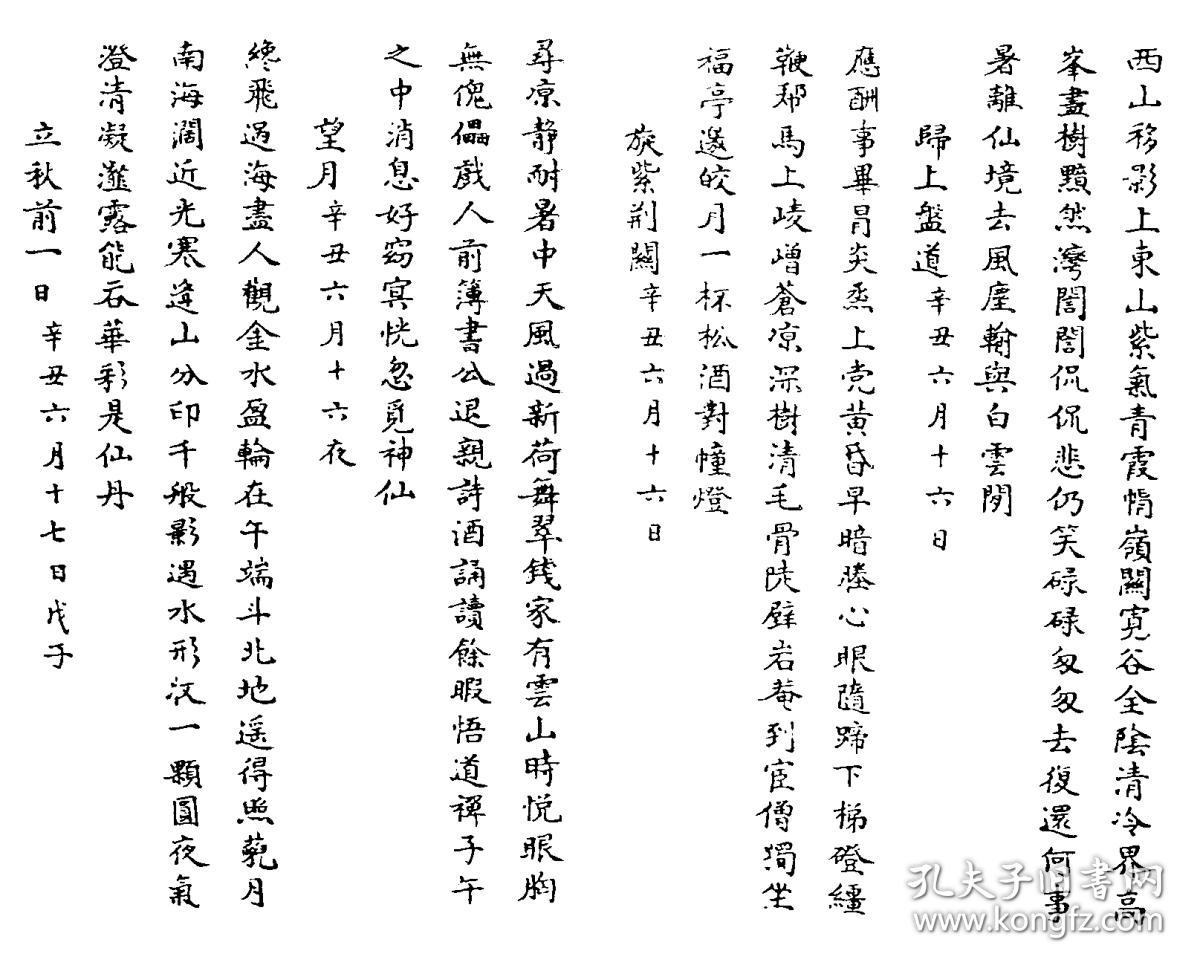 西山移影上東山紫氣青霞惰嶺關寬谷全陰清冷界高
峯盡樹黯然灣誾誾侃侃悲仍笑碌碌匆匆去復還何事
暑離仙境去風塵輸與白雲閒
歸上盤道辛丑六月十六日
應酬事畢冐炎烝上党黃昏早暗塍心眼隨蹄下梯磴纏
鞭郑馬上崚嶒蒼凉深樹清毛骨陡壁岩菴到宦僧獨坐
福亭邊皎月一杯松酒對幢燈
旋紫荆關辛丑六月十六日
尋凉静耐暑中天風過新荷舞翠錢家有雲山時悅眼胸
無傀儡戲人前簿書公退親詩酒誦讀餘暇悟道禪子午
之中消息好窈冥恍忽覓神仙
望月辛丑六月十六夜
纔飛過海盡人觀金水盈輪在午端斗北地遥得照薿月
南海濶近光寒逄山分印千般影遇水形沉一顆圓夜氣
澄清凝灔露能吞華彩是仙丹
立秋前一日辛丑六月十七日戊子
孔夫子旧書网
www.kongfz.com